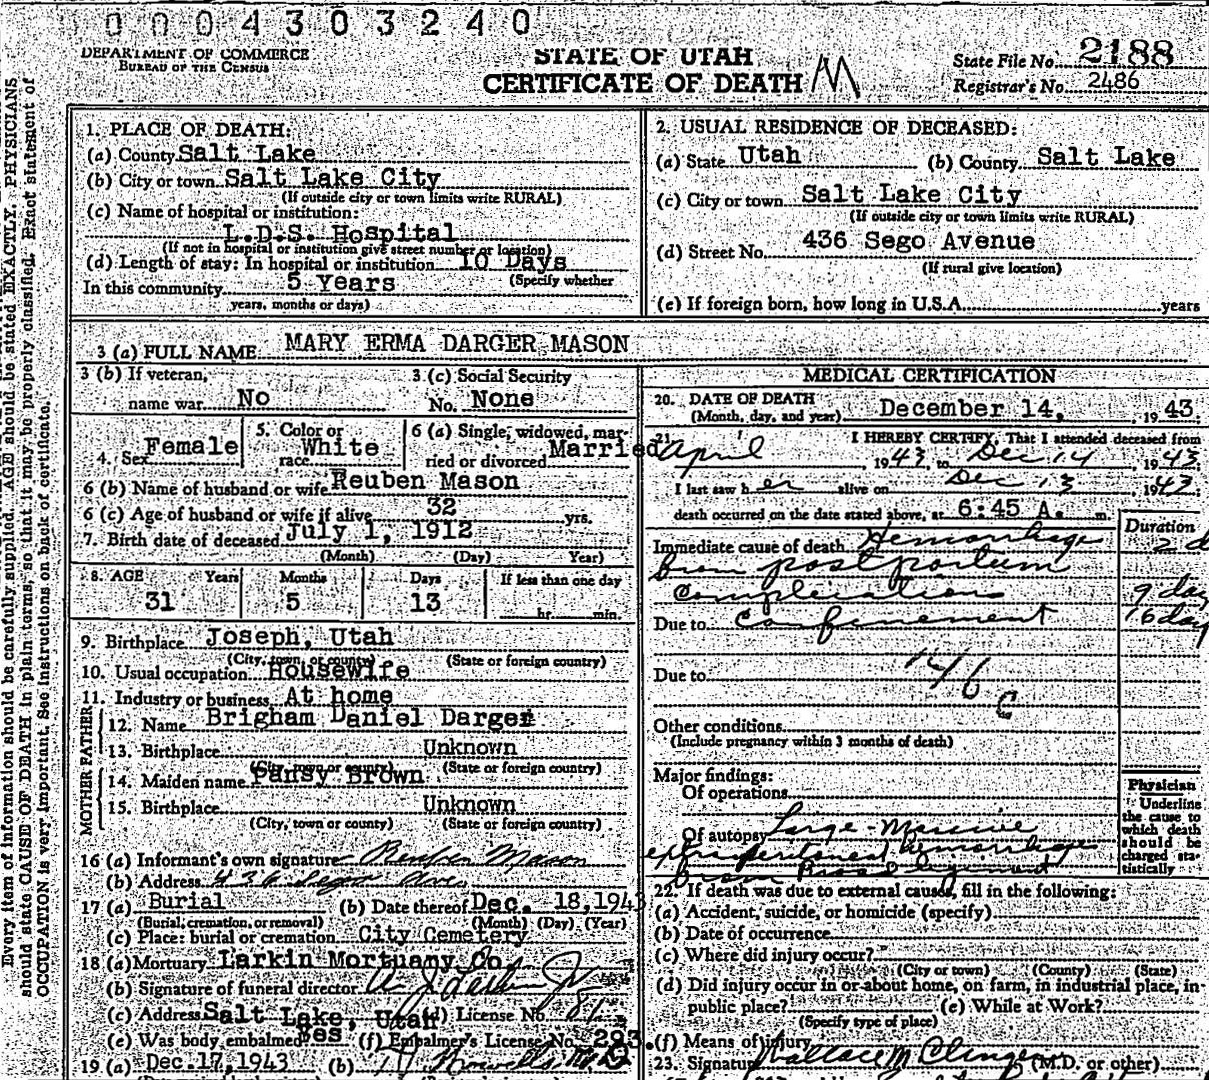 0004303240
DEPARTMENT OF COMMERCE
BUREAU OF THE CENSUS
STATE OF UTAH
CERTIFICATE OF DEATH M
State File No. 2188
Registrar's No. 2486
Every item of information should be carefully supplied. AGE should be stated EXACTLY. PHYSICIANS
should state CAUSE OF DEATH in plain terms, so that it may be properly classified. Exact statement of
OCCUPATION is very important. See instructions on back of certificate.
1. PLACE OF DEATH:
(a) County Salt Lake
(b) City or town Salt Lake City
(If outside city or town limits write RURAL)
(c) Name of hospital or institution:
L.D.S. Hospital
(If not in hospital or institution give street number or location)
(d) Length of stay: In hospital or institution 10 Days
(Specify whether
In this community 5 Years
years, months or days)
2. USUAL RESIDENCE OF DECEASED:
(a) State Utah (b) County Salt Lake
(c) City or town Salt Lake City
(If outside city or town limits write RURAL)
(d) Street No. 436 Sego Avenue
(If rural give location)
(e) If foreign born, how long in U.S.A. years
3 (a) FULL NAME MARY ERMA DARGER MASON
3 (b) If veteran, name war No
3 (c) Social Security No. None
4. Sex Female
5. Color or race White
6 (a) Single, widowed, married or divorced Married
6 (b) Name of husband or wife Reuben Mason
6 (c) Age of husband or wife if alive 32 yrs.
7. Birth date of deceased July 1, 1912
(Month) (Day) Year)
8. AGE Years Months Days If less than one day
31 5 13 hr. min.
9. Birthplace Joseph, Utah
(City, town, or county) (State or foreign country)
10. Usual occupation Housewife
11. Industry or business At home
FATHER
12. Name Brigham Daniel Darger
13. Birthplace Unknown
(City, town or county) (State or foreign country)
MOTHER
14. Maiden name Pansy Brown
15. Birthplace Unknown
(City, town or county) (State or foreign country)
16 (a) Informant's own signature Reuben Mason
(b) Address 436 Sego Ave
17 (a) Burial (b) Date thereof Dec. 18, 1943
(Burial, cremation, or removal) (Month) (Day) (Year)
(c) Place: burial or cremation City Cemetery
18 (a) Mortuary Larkin Mortuary Co.
(b) Signature of funeral director
(c) Address Salt Lake, Utah (d) License No. 81
(e) Was body embalmed yes (f) Embalmer's License No. 293.
19 (a) Dec. 17, 1943 (b)
MEDICAL CERTIFICATION
20. DATE OF DEATH
(Month, day, and year) December 14, 1943.
21. I HEREBY CERTIFY, That I attended deceased from
April 1943, to Dec 14, 1943
I last saw her alive on Dec 13, 1943
death occurred on the date stated above, at 6:45 A. m.
Duration
Immediate cause of death Hemorrhage 2 d
from postpartum
complications 9 day
Due to confinement 16 day
Due to
146
C
Other conditions
(Include pregnancy within 3 months of death)
Major findings:
Of operations
Of autopsy Large - Massive
extraperitoneal hemorrhage
from Broad ligament
Physician
Underline
the cause to
which death
should be
charged sta-
tistically
22. If death was due to external causes, fill in the following:
(a) Accident, suicide, or homicide (specify)
(b) Date of occurrence
(c) Where did injury occur?
(City or town) (County) (State)
(d) Did injury occur in or about home, on farm, in industrial place, in
public place? (e) While at Work?
(Specify type of place)
(f) Means of injury
23. Signature Wallace M. Clinger (M.D. or other)